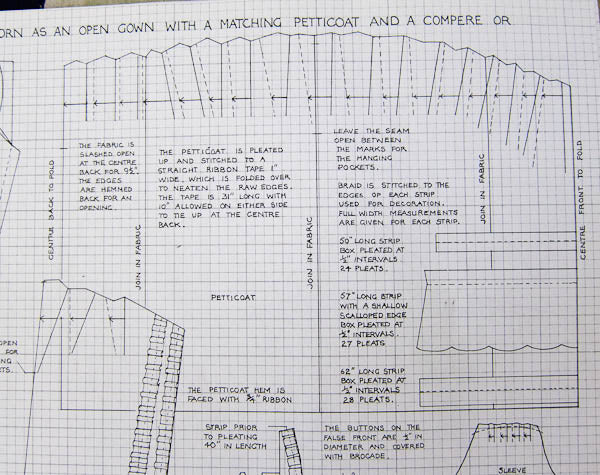 ORN AS AN OPEN GOWN WITH A MATCHING PETTICOAT AND A COMPERE OR
THE FABRIC IS
SLASHED OPEN
AT THE CENTRE
BACK FOR 9½".
THE EDGES
ARE HEMMED
BACK FOR AN
OPENING.
CENTRE BACK TO FOLD
JOIN IN FABRIC
THE PETTICOAT IS PLEATED
UP AND STITCHED TO A
STRAIGHT RIBBON TAPE 1"
WIDE, WHICH IS FOLDED OVER
TO NEATEN THE RAW EDGES.
THE TAPE IS 31" LONG WITH
10" ALLOWED ON EITHER SIDE
TO TIE UP AT THE CENTRE
BACK.
JOIN IN FABRIC
LEAVE THE SEAM
OPEN BETWEEN
THE MARKS FOR
THE HANGING
POCKETS.
BRAID IS STITCHED TO THE
EDGES OF EACH STRIP
USED FOR DECORATION.
FULL WIDTH MEASUREMENTS
ARE GIVEN FOR EACH STRIP.
JOIN IN FABRIC
CENTRE FRONT TO FOLD
50" LONG STRIP
BOX PLEATED AT
½" INTERVALS
24 PLEATS.
PETTICOAT
57" LONG STRIP
WITH A SHALLOW
SCALLOPED EDGE
BOX PLEATED AT
½" INTERVALS.
27 PLEATS
62" LONG STRIP
BOX PLEATED AT
½" INTERVALS
28 PLEATS.
THE PETTICOAT HEM IS
FACED WITH ¾" RIBBON
OPEN
FOR
NG
TS.
STRIP PRIOR
TO PLEATING
40" IN LENGTH
THE BUTTONS ON THE
FALSE FRONT ARE ½" IN
DIAMETER AND COVERED
WITH BROCADE.
SLEEVE